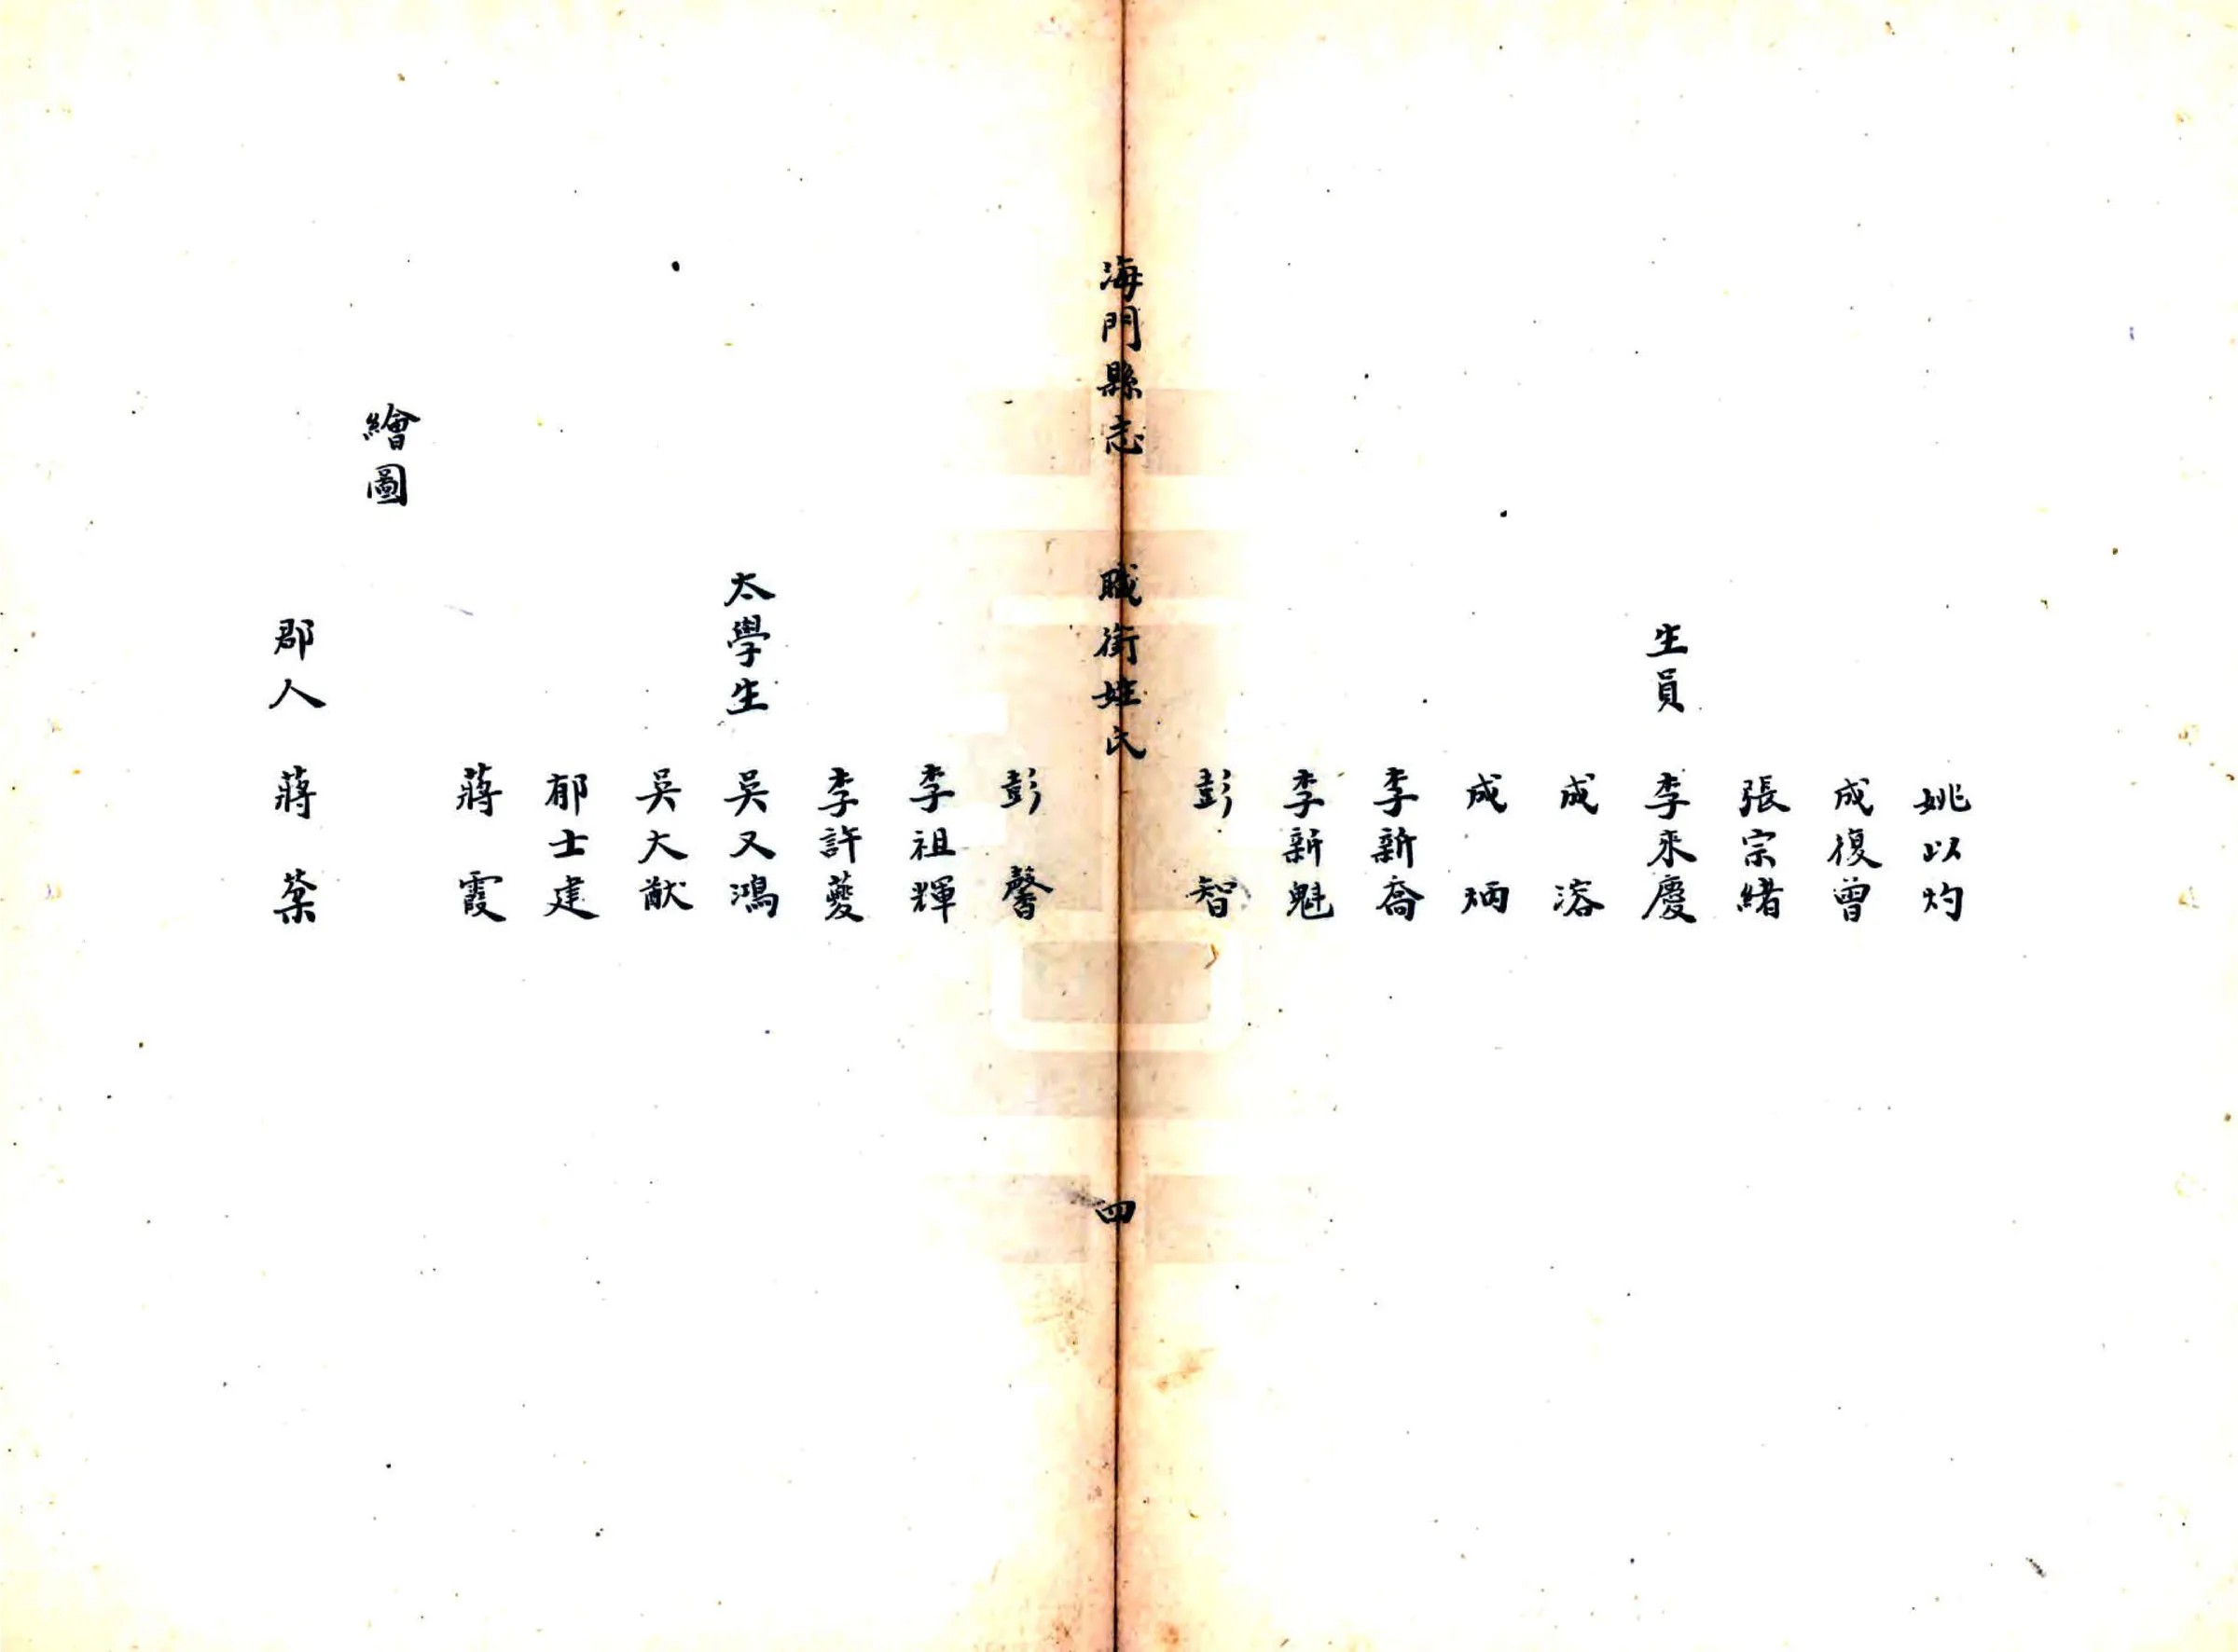 姚以灼
成復曾
張宗緒
生員 李來慶
成溶
成炳
李新喬
李新魁
彭智
海門縣志 職銜姓氏 四
彭馨
李祖輝
李許夔
太學生 吳又鴻
吳大猷
郁士建
蔣霞
繪圖
郡人 蔣